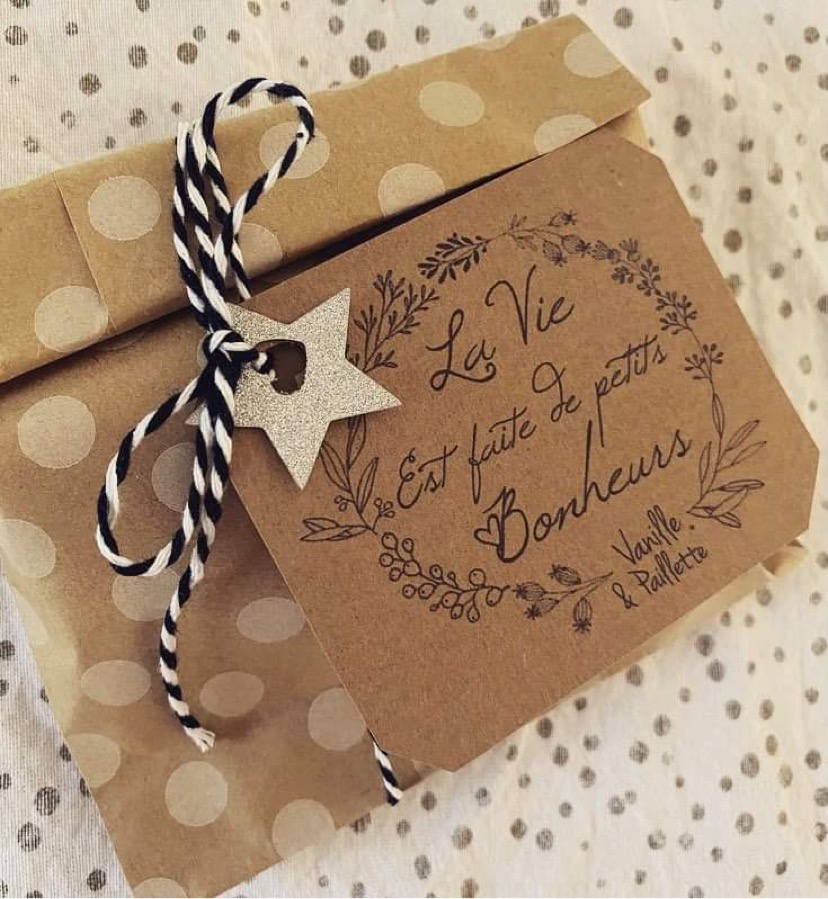 La Vie
Est faite de petits
Bonheurs
Vanille
& Paillette